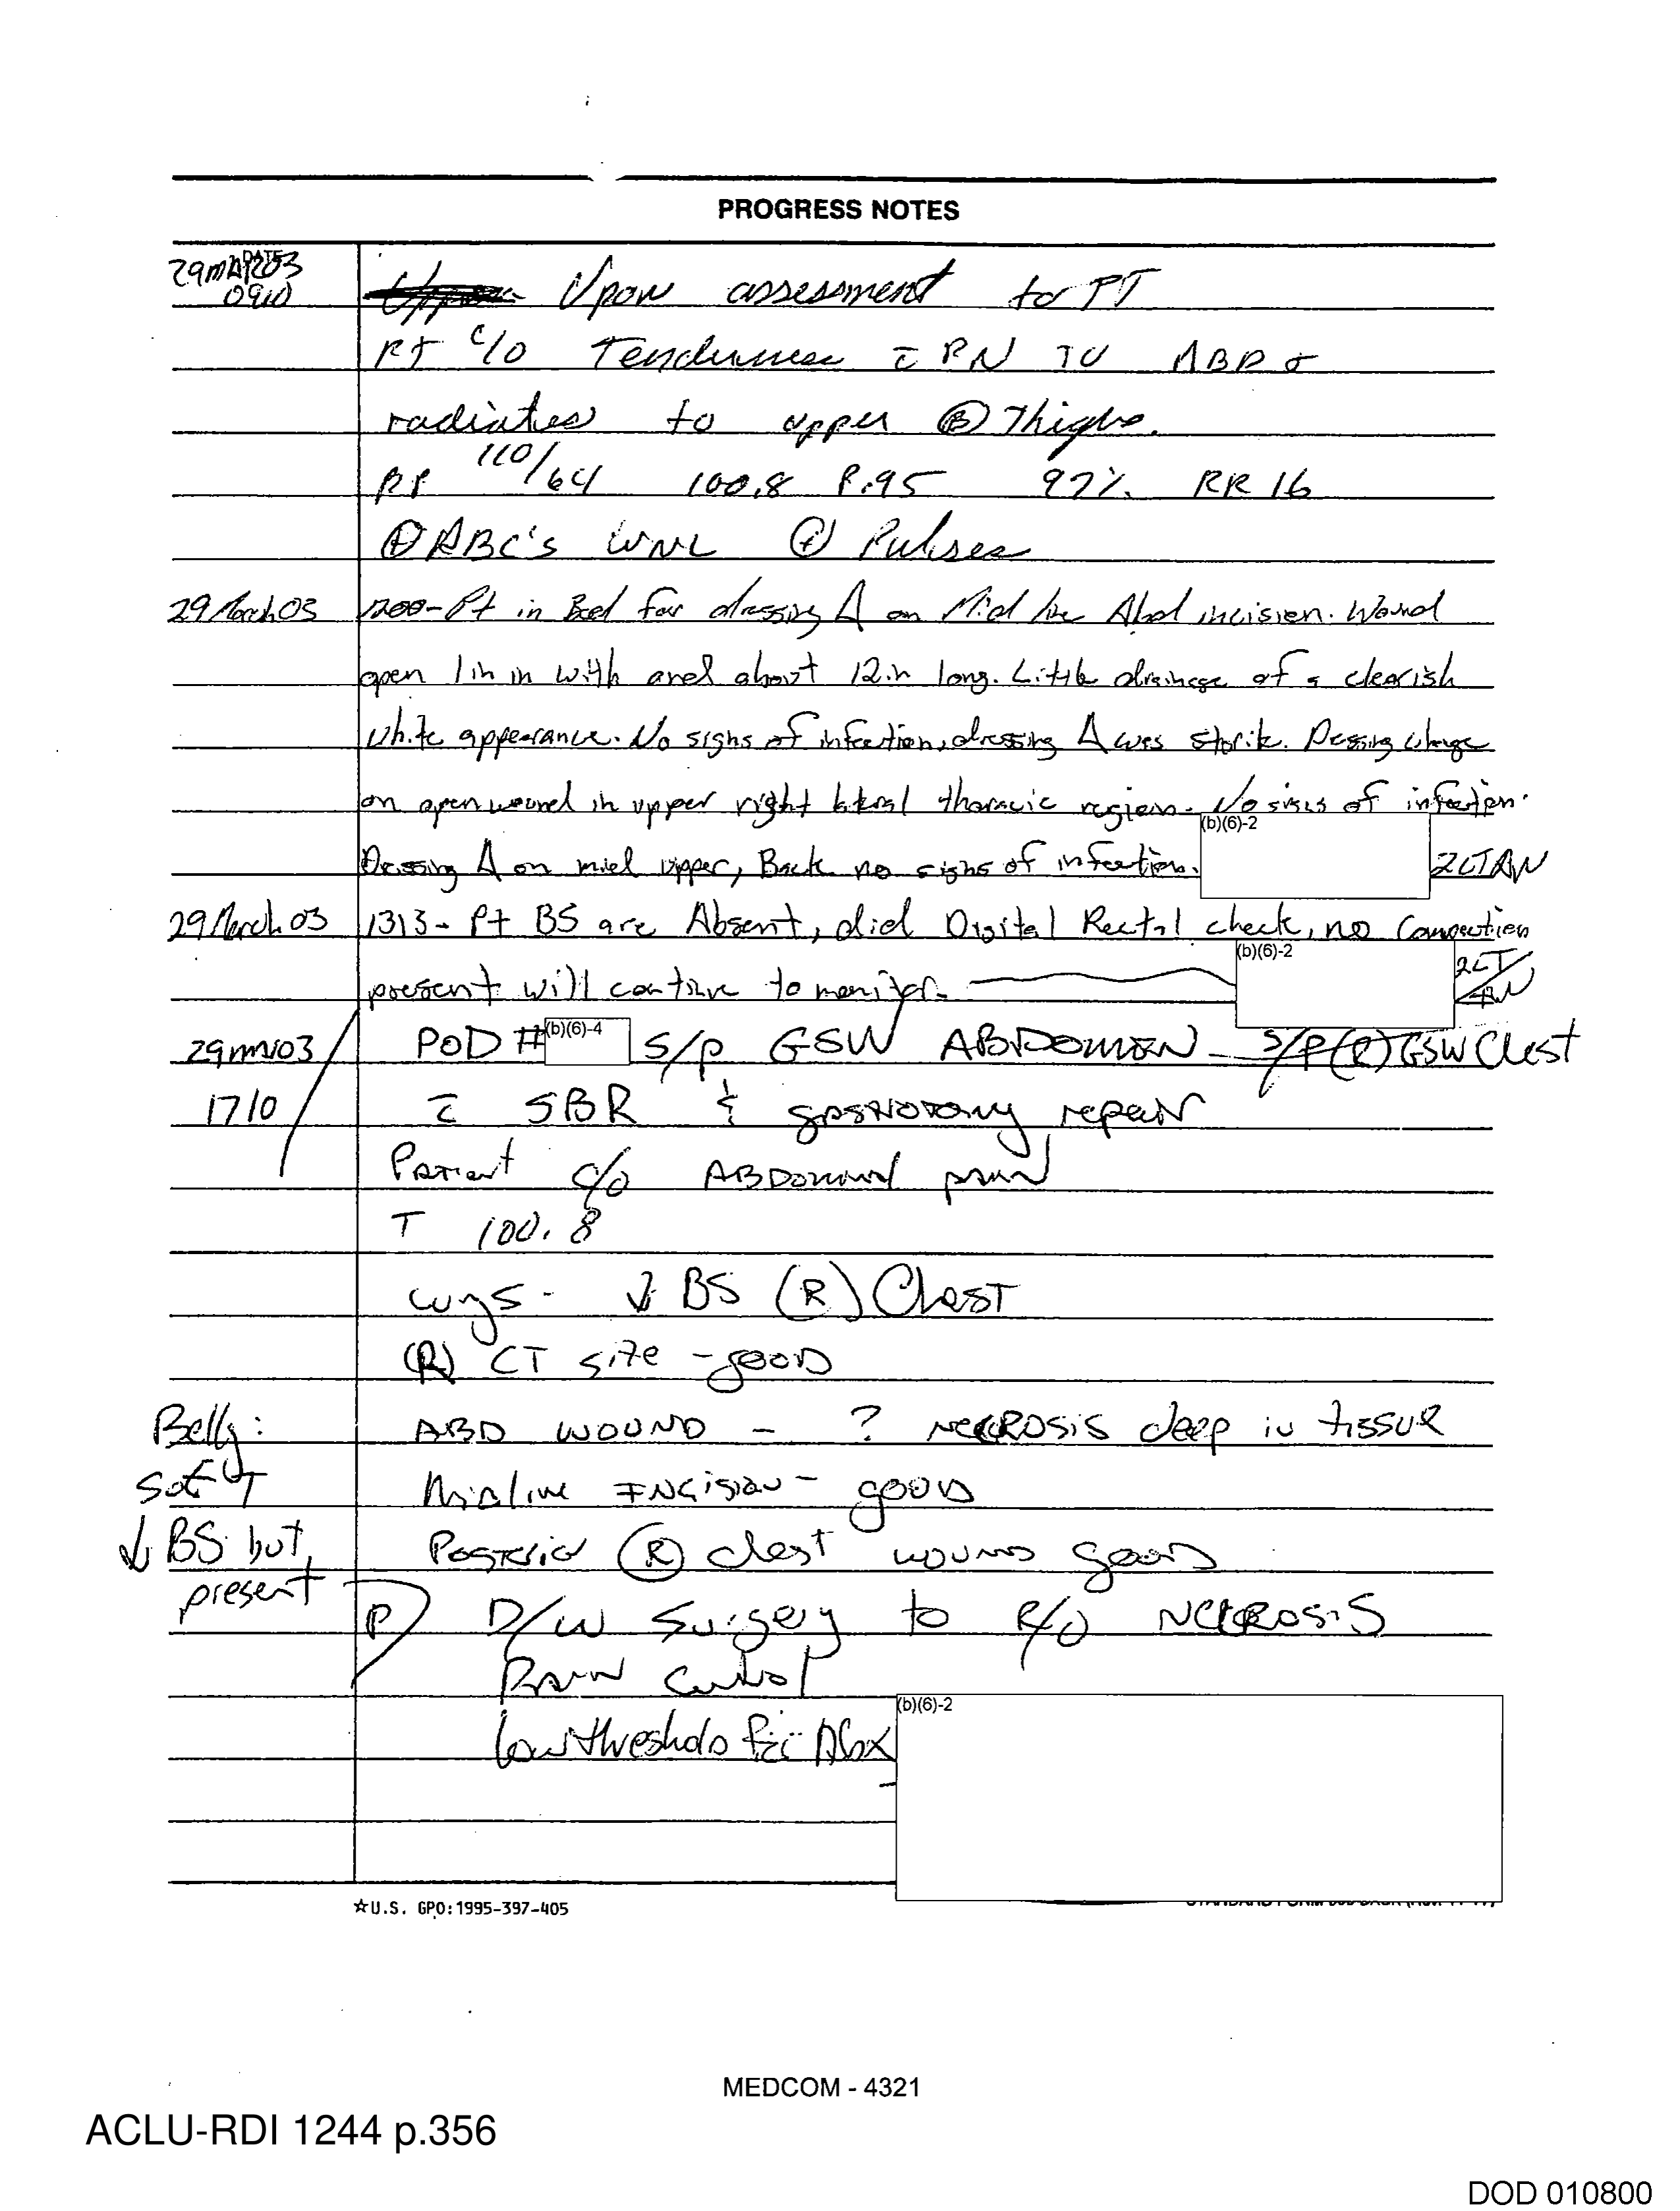 PROGRESS NOTES
DATE
29MAR03
0910
Upon assessment to PT
PT c/o Tenderness c̄ PN TO ABD &
radiates to upper Ⓑ Thighs.
BP 110/64 100.8 P.95 97% RR 16
⊕ ABC's WNL ⊕ Pulses
29 March 03 1200- Pt in Bed for dressing Δ on Mid line Abd incision. Wound
open 1 in in with and about 12 in long. Little drainage of a clearish
white appearance. No signs of infection, dressing Δ was
Dressing change
on open wound in upper right lateral thoracic region. No signs of infection.
(b)(6)-2
Dressing Δ on mid upper, Back no signs of infection. 2LT AN
29 March 03 1313- Pt BS are Absent, did Digital Rectal check, no
(b)(6)-2
present will continue to monitor. 2LT/AN
29 03 POD # (b)(6)-4 S/P GSW ABDOMEN S/P (R) GSW Chest
1710 c̄ SBR & repair
Patient c/o ABDOMINAL pain
T 100.8
Lungs - ↓ BS (R) Chest
(R) CT site - good
Belly: ABD WOUND - ? NECROSIS deep in tissue
soft Midline INCISION - good
↓ BS but Posterior Ⓡ chest wound good
present
P) D/W Surgery to R/O NECROSIS
PAIN control
low threshold for Abx
(b)(6)-2
☆U.S. GPO:1995-397-405
MEDCOM - 4321
ACLU-RDI 1244 p.356
DOD 010800